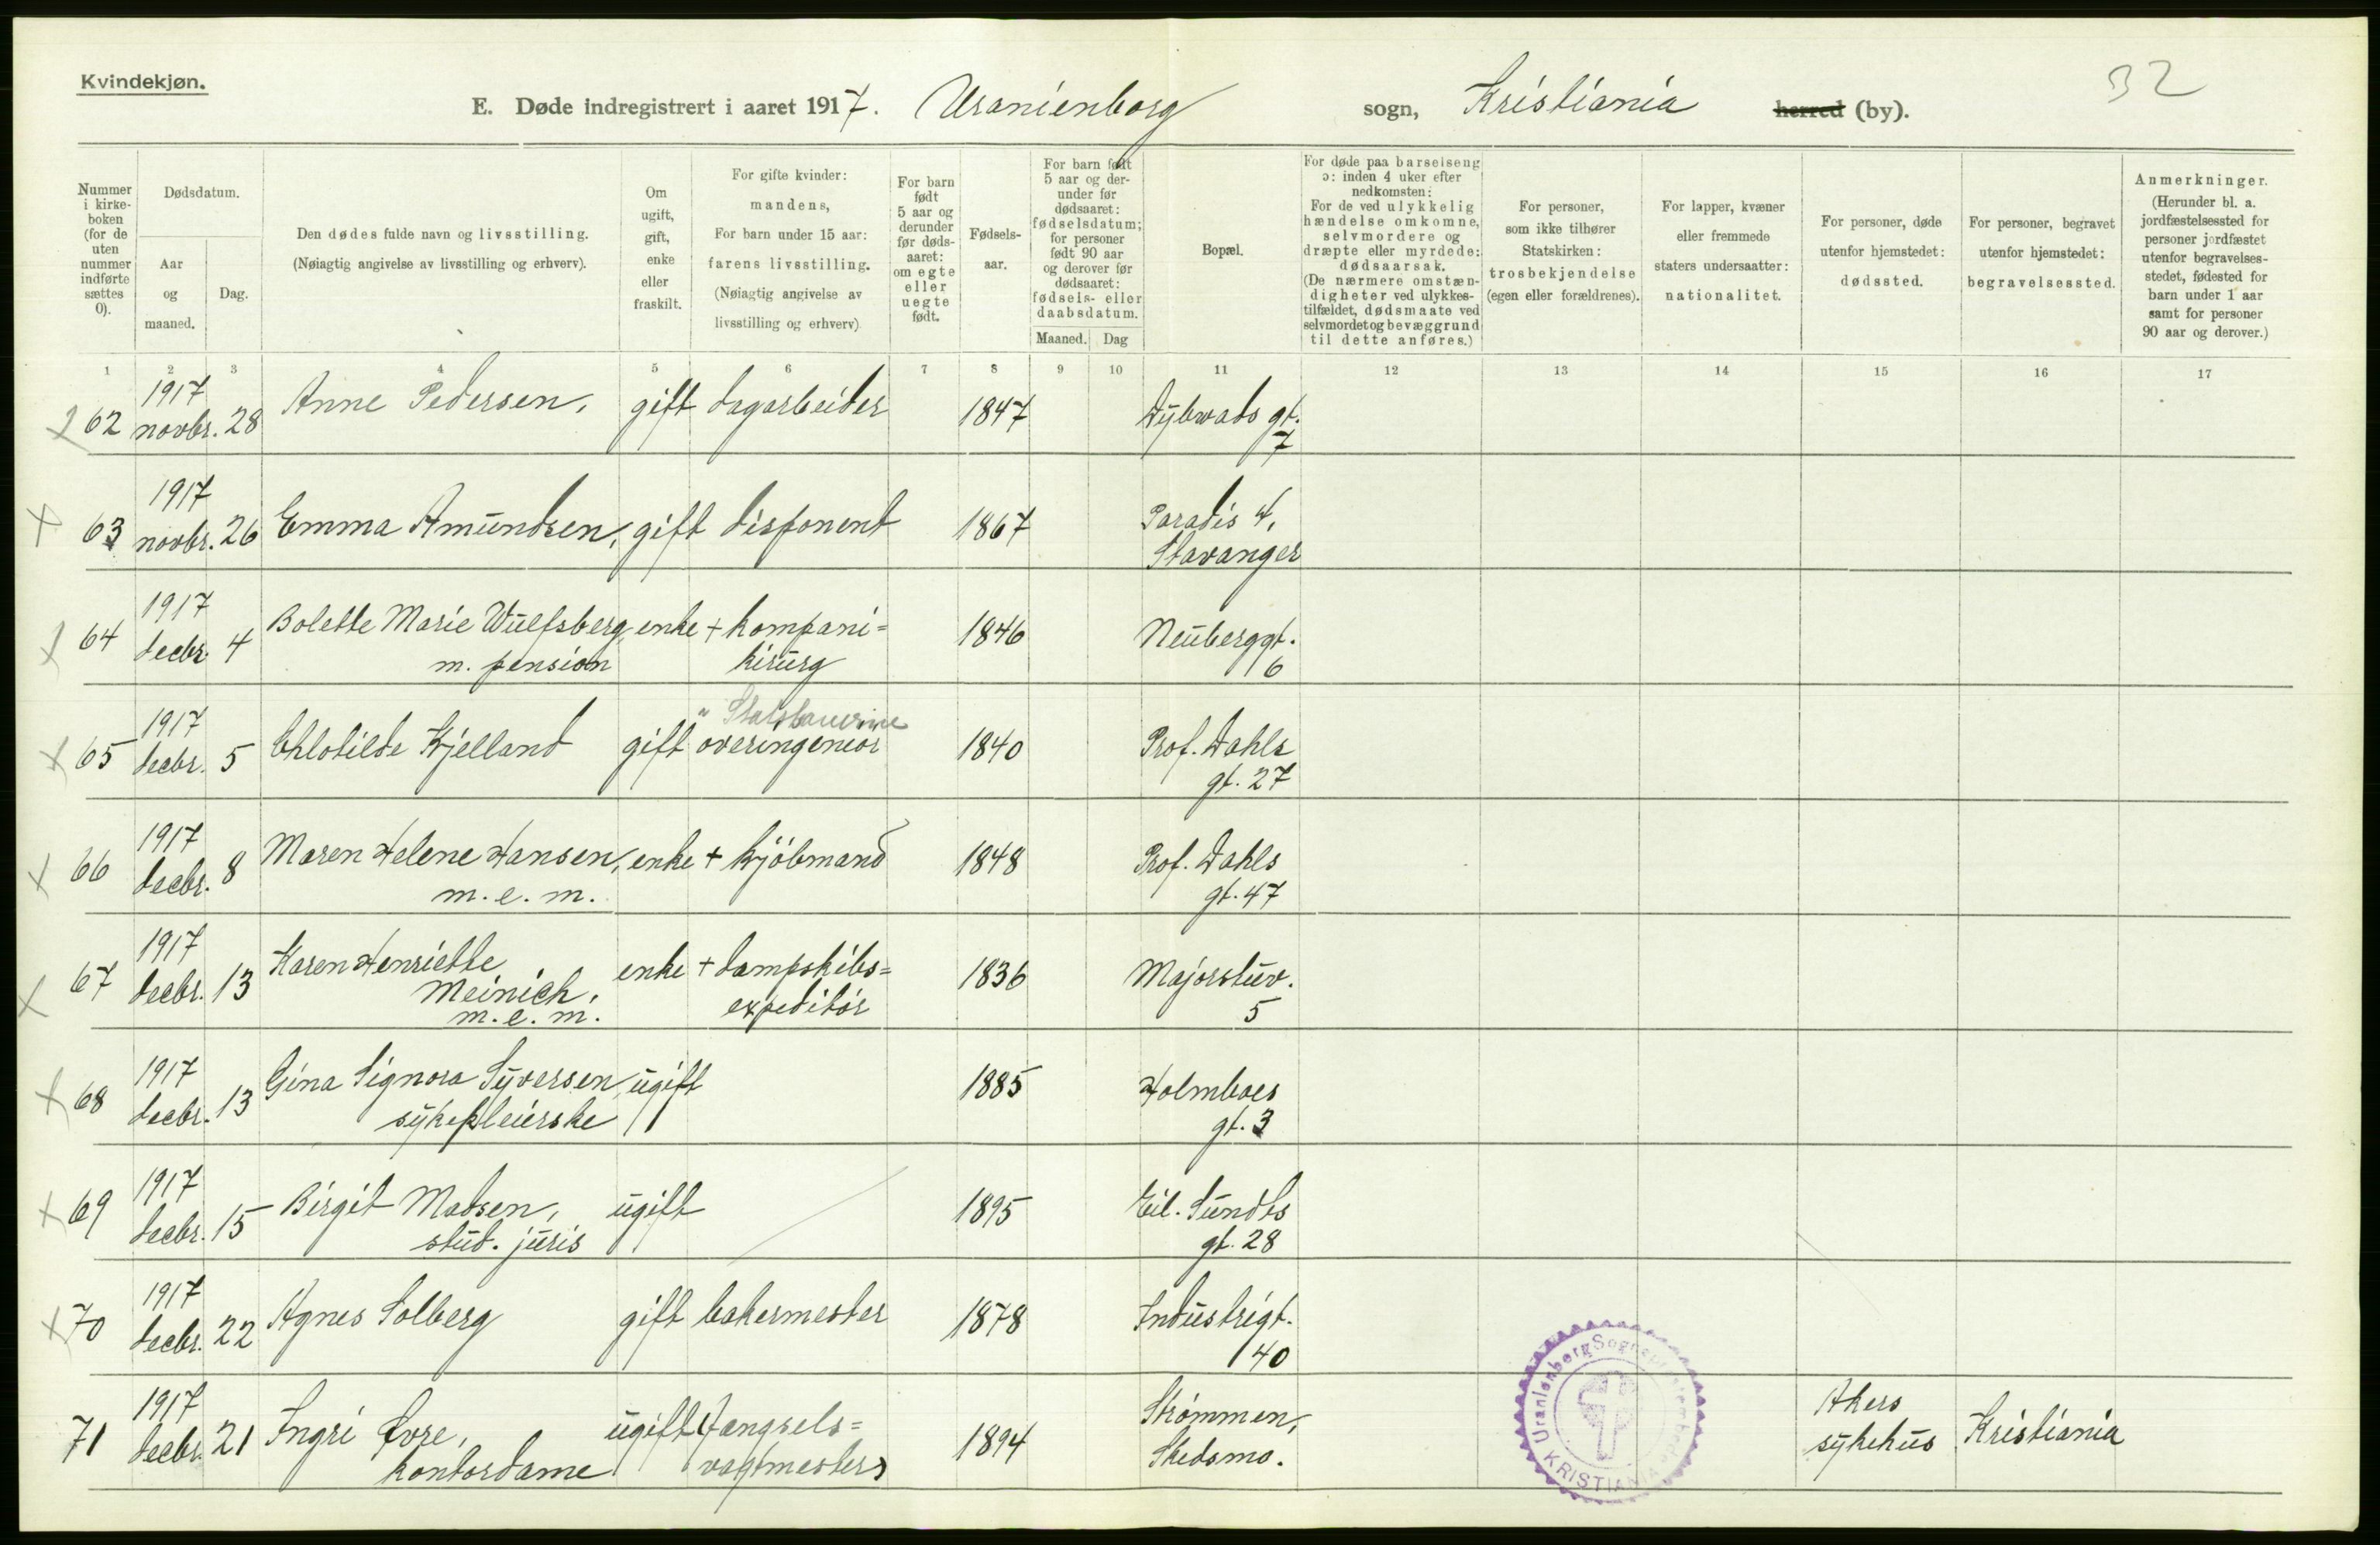 Kvindekjøn.
32
E. Døde indregistrert i aaret 1917. Uranienborg sogn, Kristiania herred (by).
Nummer i kirke- boken (for de uten nummer indførte sættes 0).
Dødsdatum.
Aar og maaned.
Dag.
Den dødes fulde navn og livsstilling.
(Nøiagtig angivelse av livsstilling og erhverv).
Om ugift, gift, enke eller fraskilt.
For gifte kvinder: mandens,
For barn under 15 aar: farens livsstilling.
(Nøiagtig angivelse av livsstilling og erhverv)
For barn født 5 aar og derunder før døds- aaret: om egte eller uegte født.
Fødsels- aar.
For barn født 5 aar og der- under før dødsaaret: fødselsdatum; for personer født 90 aar og derover før dødsaaret: fødsels- eller daabsdatum.
Maaned. Dag
Bopæl.
For døde paa barselseng ɔ: inden 4 uker efter nedkomsten:
For de ved ulykkelig hændelse omkomne, selvmordere og dræpte eller myrdede: dødsaarsak.
(De nærmere omstæn- digheter ved ulykkes- tilfældet, dødsmaate ved selvmordet og bevæggrund til dette anføres.)
For personer, som ikke tilhører Statskirken: trosbekjendelse (egen eller forældrenes).
For lapper, kvæner eller fremmede staters undersaatter: nationalitet.
For personer, døde utenfor hjemstedet: dødssted.
For personer, begravet utenfor hjemstedet: begravelsessted.
Anmerkninger.
(Herunder bl. a. jordfæstelsessted for personer jordfæstet utenfor begravelses- stedet, fødested for barn under 1 aar samt for personer 90 aar og derover.)
1 2 3 4 5 6 7 8 9 10 11 12 13 14 15 16 17
62 1917 novbr. 28 Anne Pedersen, gift dagarbeider 1847 Dybwads gt. 7
63 1917 novbr. 26 Emma Amundsen, gift disponent 1867 Paradis 4, Stavanger
64 1917 decbr. 4 Bolette Marie Wulfsberg, m. pension enke + kompani= kirurg 1846 Neuberggt. 6
65 1917 decbr. 5 Chlotilde Kjelland gift overingeniør 1840 Prof. Dahls gt. 27
66 1917 decbr. 8 Maren Helene Hansen, m. e. m. enke + kjøbmand 1848 Prof. Dahls gt. 47
67 1917 decbr. 13 Karen Henriette Meinich, m. e. m. enke + dampskibs= expeditør 1836 Majorstuv. 5
68 1917 decbr. 13 Gina Signora Syversen, sykepleierske ugift 1885 Holmboes gt. 3
69 1917 decbr. 15 Birgit Madsen, stud. juris ugift 1895 Eil. Sundts gt. 28
70 1917 decbr. 22 Agnes Solberg gift bakermester 1878 Industrigt. 40
71 1917 decbr. 21 Ingri Øvre, kontordame ugift (fangsels= vagtmester) 1894 Strømmen, Skedsmo. Akers sykehus Kristiania
Uranienborg Sogneprestembede KRISTIANIA